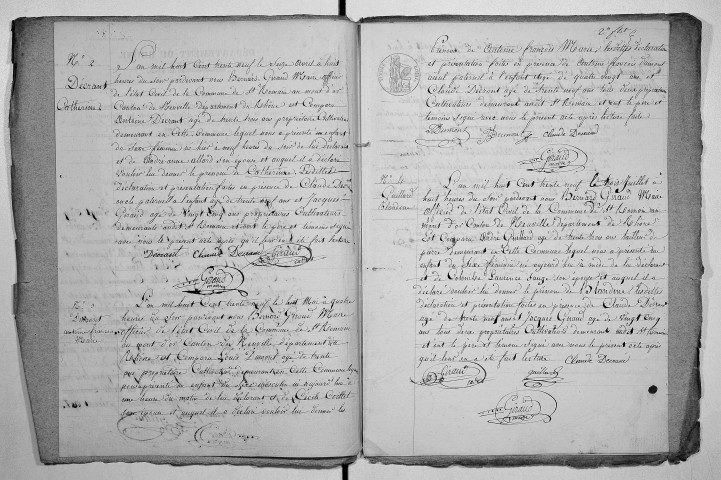 N.º 2
Decrant
Catherine
L'an mil huit Cent trente neuf le Seize Avril à huit
heures du Soir pardevant nous Bernard Giraud Maire officier
de l'état Civil de la Commune de St Romain au mont d'or
Canton de Neuville département du Rhône est Comparu
Antoine Decrant agé de trente ans propriétaire Cultivateur
demeurant en Cette Commune lequel nous a présenté un enfant
du Sexe féminin né hier à neuf heures du Soir de lui déclarant
et de son épouse et auquel il a déclaré
vouloir lui donner le prénom de Catherine
déclaration et présentation faites en présence de Claude Decrant
oncle paternel à l'enfant agé de trente neuf ans et Jacques
Giraud agé de vingt Cinq ans propriétaires Cultivateurs
demeurants audit St Romain et ont le père et témoins signé
avec nous le présent acte après qu'il leur en a été fait lecture
Decrant Claude Decrant Giraud
Giraud
maire
N.º 3
L'an mil huit Cent trente neuf le huit Mai à quatre
heures du Soir pardevant nous Bernard Giraud Maire
officier de l'état Civil de la Commune de St Romain
au mont d'or Canton de Neuville département du
Rhône est Comparu Louis Dumont agé de trente
ans propriétaire Cultivateur demeurant en Cette Commune lequel
nous a présenté un enfant du Sexe masculin né aujourd'hui à
une heure du matin de lui déclarant et de
son épouse et auquel il a déclaré vouloir lui donner les
2e ft
Prénoms de Antoine françois Marie, lesdites déclaration
et présentation faites en présence de Antoine françois Dumont
aieul paternel à l'enfant agé de quatre vingt ans et
Claude Decrant agé de trente neuf ans tous deux propriétaires
Cultivateurs demeurant audit St Romain et ont le père et
témoins signé avec nous le présent acte après lecture faite
Dumont Claude Decrant
Giraud
maire
N.º 4
Guillard
Blandine
L'an mil huit Cent trente neuf le trois Juillet à
huit heures du Soir pardevant nous Bernard Giraud Maire
officier de l'état Civil de la Commune de St Romain au
mont d'or Canton de Neuville département du Rhône
est Comparu André Guillard agé de trente trois ans tailleur de
pierre demeurant en Cette Commune lequel nous a présenté un
enfant du Sexe féminin né aujourd'hui à midi de lui déclarant
et de Laurence son épouse et auquel il a
déclaré vouloir lui donner le prénom de Blandine lesdites
déclaration et présentation faites en présence de Claude Decrant
agé de trente neuf ans et Jacques Giraud agé de vingt Cinq
ans tous deux propriétaires Cultivateurs demeurant audit St Romain
et ont le père et témoins signé avec nous le présent acte après
qu'il leur en a été fait lecture Claude Decrant
Giraud
Giraud
maire